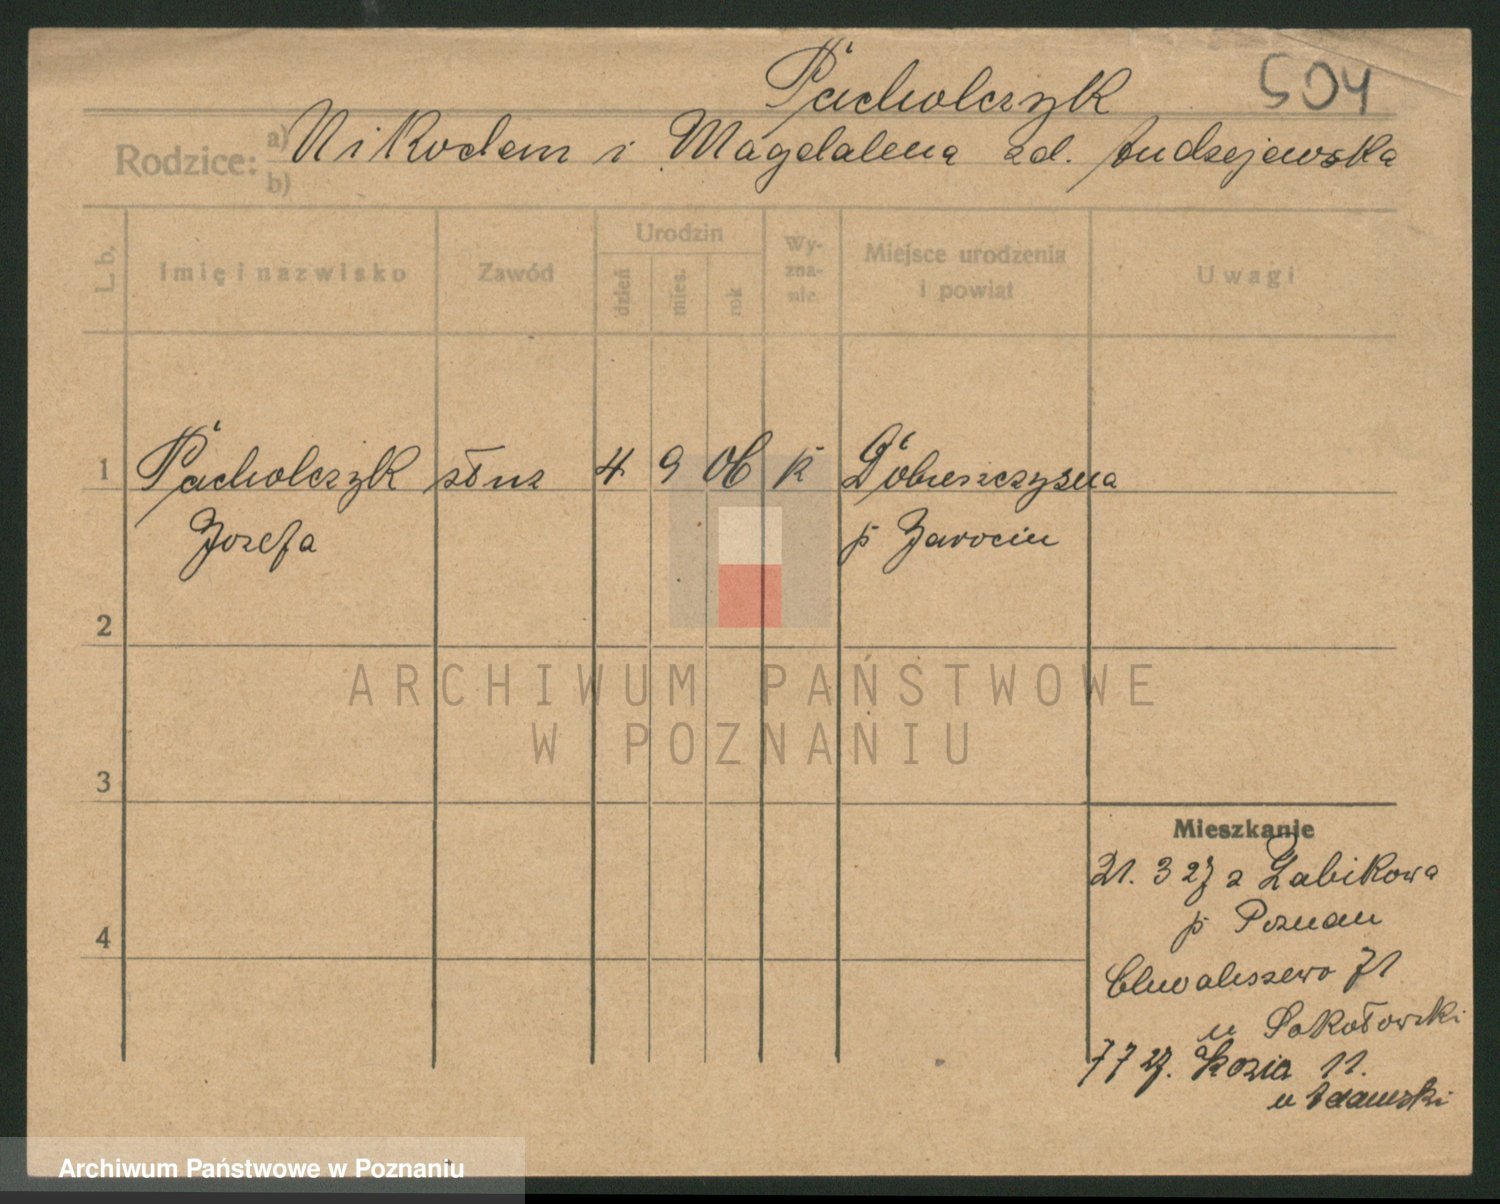 Pacholczyk 504
Rodzice: a) Nikodem i Magdalena zd. Andrzejewska
b)
L. b. Imię i nazwisko Zawód Urodzin dzień mies. rok Wyznanie Miejsce urodzenia i powiat Uwagi
1 Pacholczyk służ 4 9 06 k Dobieszczyzna
Józefa p Jarocin
2
ARCHIWUM PAŃSTWOWE
W POZNANIU
3
Mieszkanie
21. 3 27 z Żabikowa
p Poznań
4
Chwaliszewo 71
u Sokołowski
7 7 27. Kozia 11.
u Adamski
Archiwum Państwowe w Poznaniu